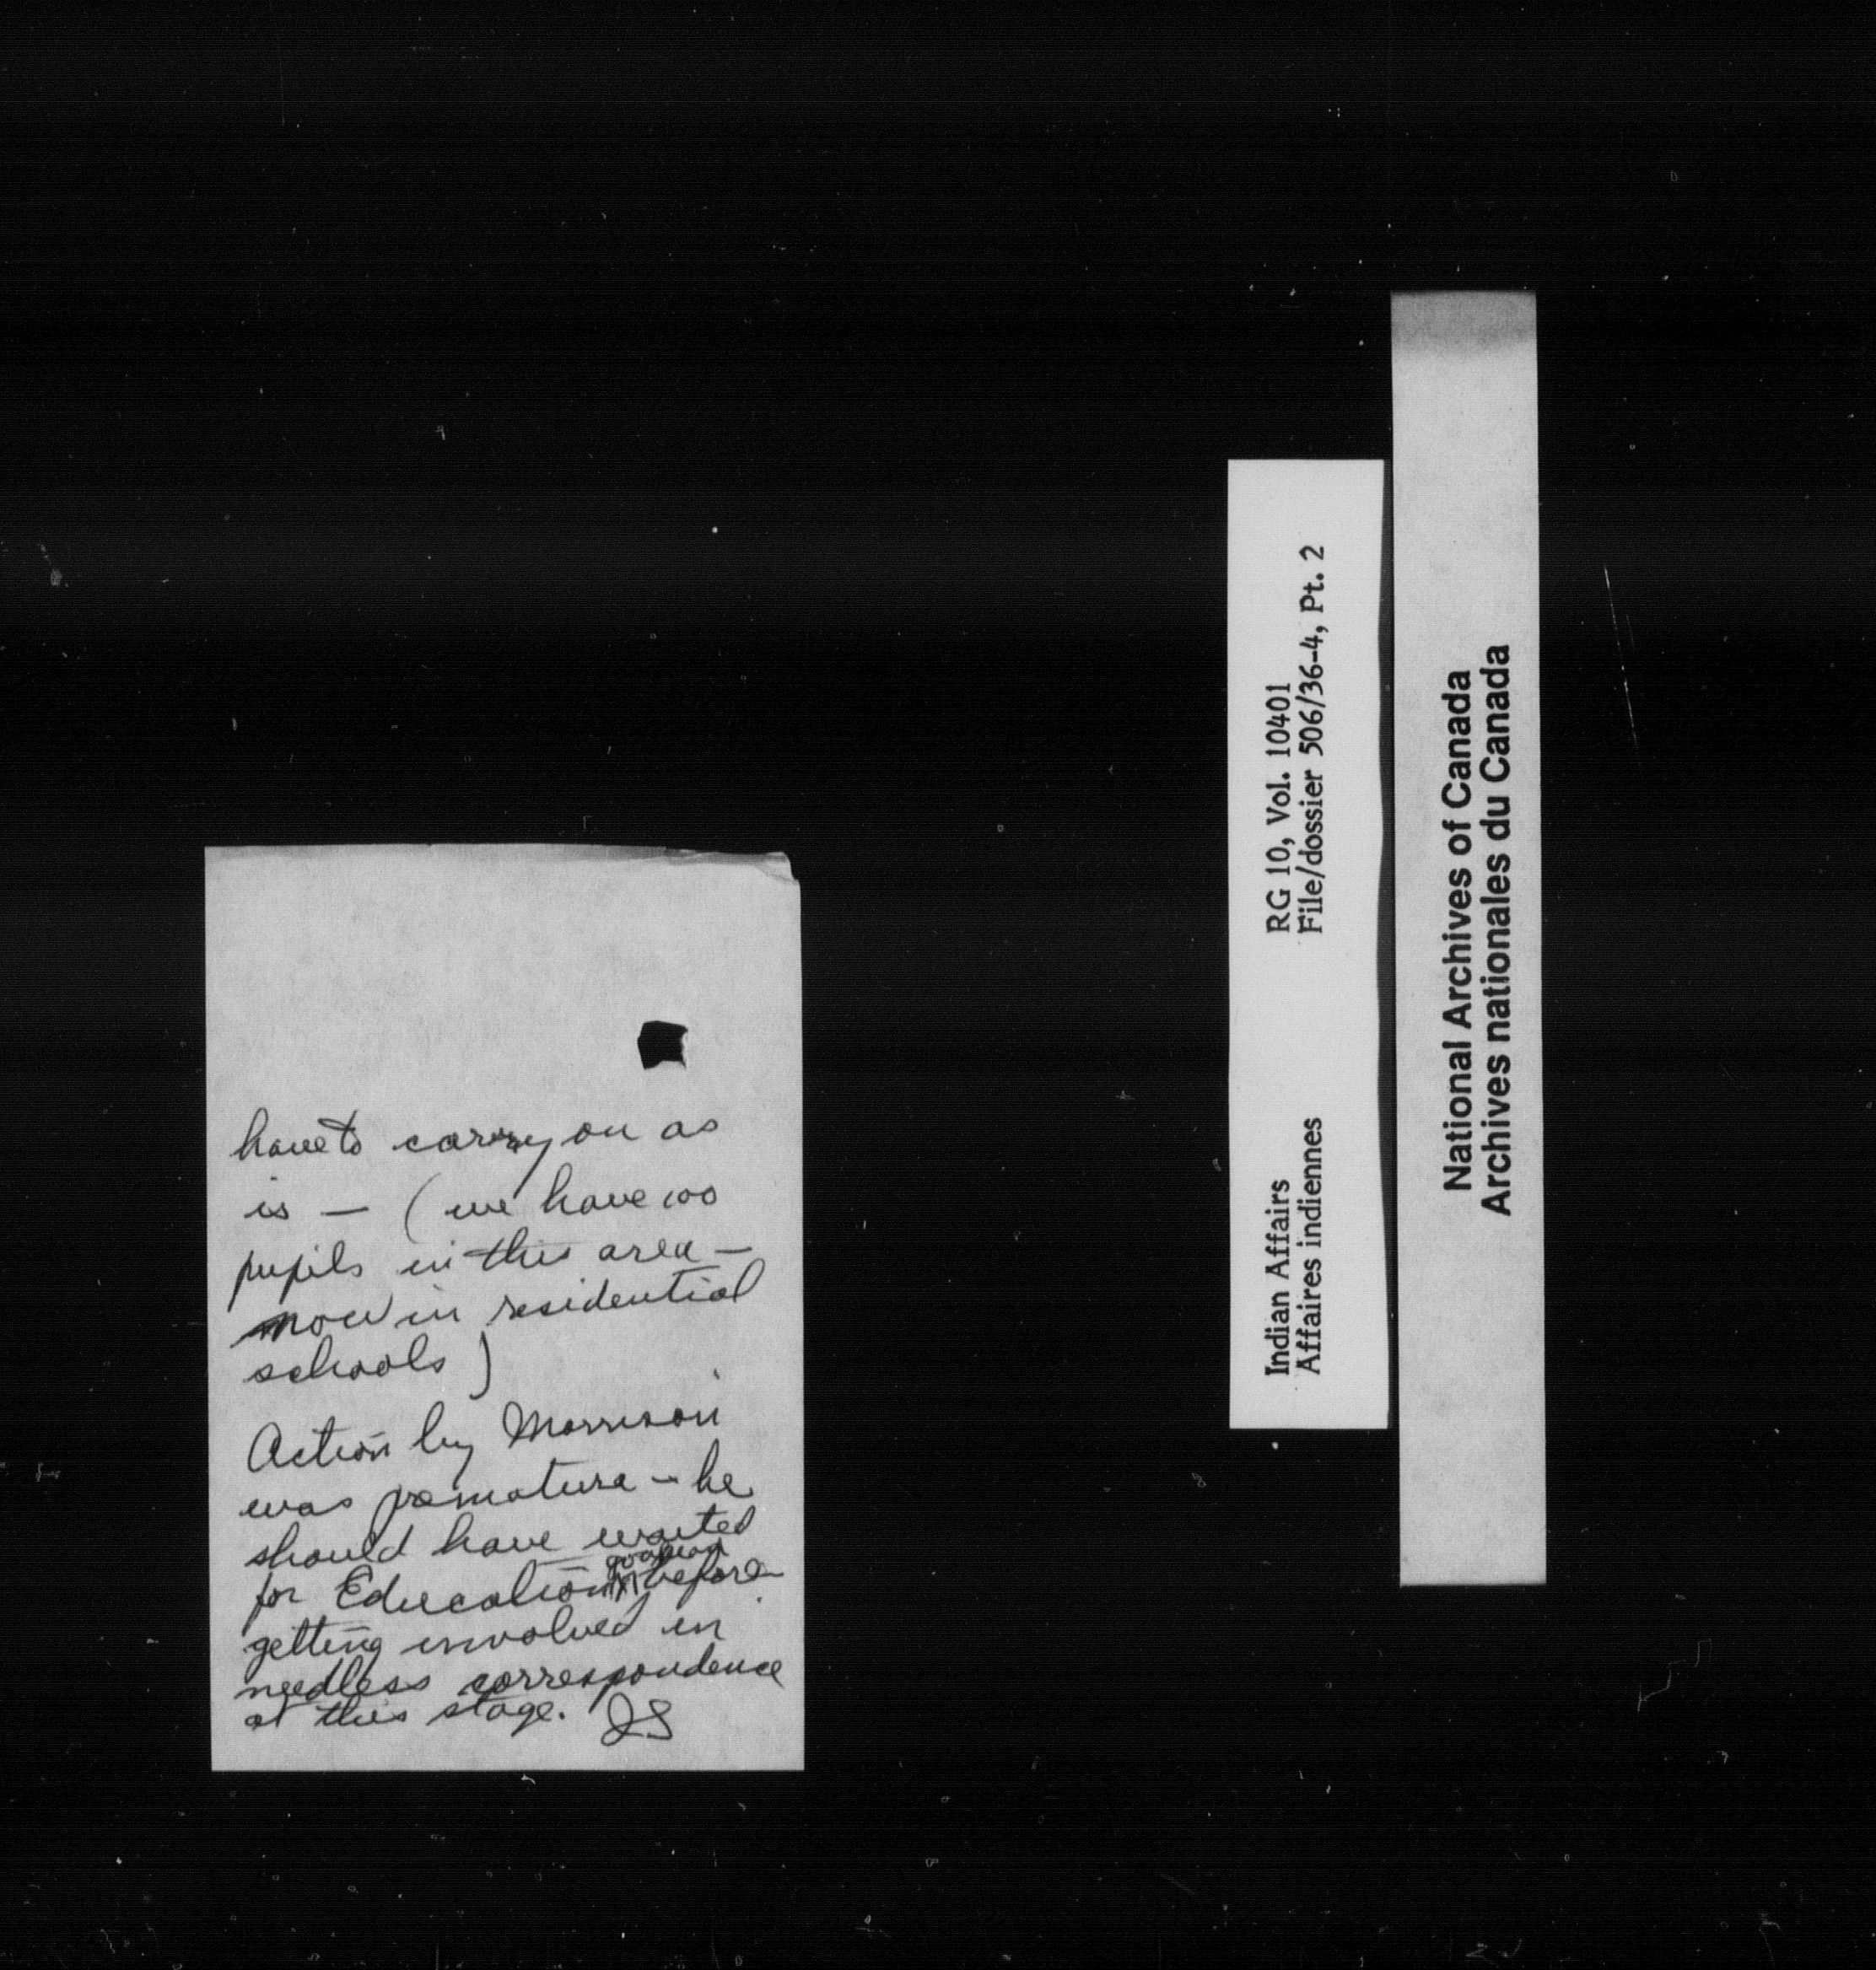 have to carry on as
is — (we have 100
pupils in this area —
now in residential
schools)
Action by Morrison
was premature – he
should have waited
for Education go ahead before
getting involved in
needless correspondence
at this stage. JS
Indian Affairs RG 10, Vol. 10401
Affaires indiennes File/dossier 506/36-4, Pt. 2
National Archives of Canada
Archives nationales du Canada